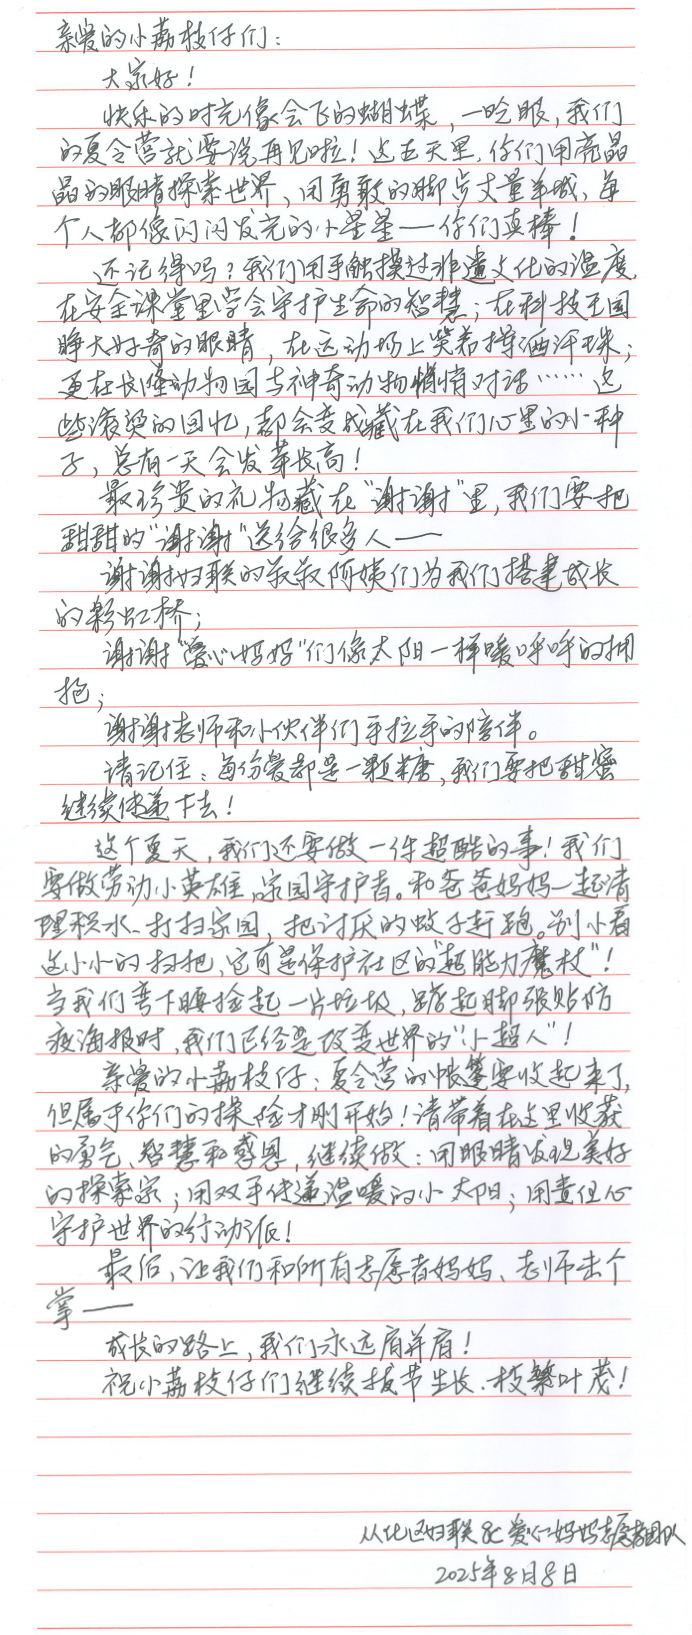 亲爱的小荔枝仔们：
大家好！
快乐的时光像会飞的蝴蝶，一眨眼，我们
的夏令营就要说再见啦！这五天里，你们用亮晶
晶的眼睛探索世界，用勇敢的脚步丈量羊城，每
个人都像闪闪发光的小星星——你们真棒！
还记得吗？我们用手触摸过非遗文化的温度，
在安全课堂里学会守护生命的智慧；在科技王国
睁大好奇的眼睛，在运动场上笑着挥洒汗珠；
更在长隆动物园与神奇动物悄悄对话……这
些滚烫的回忆，都会变成藏在我们心里的小种
子，总有一天会发芽长高！
最珍贵的礼物藏在“谢谢”里，我们要把
甜甜的“谢谢”送给很多人——
谢谢妇联的叔叔阿姨们为我们搭建成长
的彩虹桥；
谢谢“爱心妈妈”们像太阳一样暖呼呼的拥
抱；
谢谢老师和小伙伴们手拉手的陪伴。
请记住：每份爱都是一颗糖，我们要把甜蜜
继续传递下去！
这个夏天，我们还要做一件超酷的事！我们
要做劳动小英雄，家园守护者。和爸爸妈妈一起清
理积水、打扫家园，把讨厌的蚊子赶跑。别小看
这小小的扫把，它可是保护社区的“超能力魔杖”！
当我们弯下腰捡起一片垃圾，踮起脚张贴防
疫海报时，我们已经是改变世界的“小超人”！
亲爱的小荔枝仔：夏令营的帐篷要收起来了，
但属于你们的探险才刚开始！请带着在这里收获
的勇气、智慧和感恩，继续做：用眼睛发现美好
的探索家；用双手传递温暖的小太阳；用责任心
守护世界的行动派！
最后，让我们和所有志愿者妈妈、老师击个
掌——
成长的路上，我们永远肩并肩！
祝小荔枝仔们继续拔节生长、枝繁叶茂！
从化区妇联&爱心妈妈志愿者团队
2025年8月8日